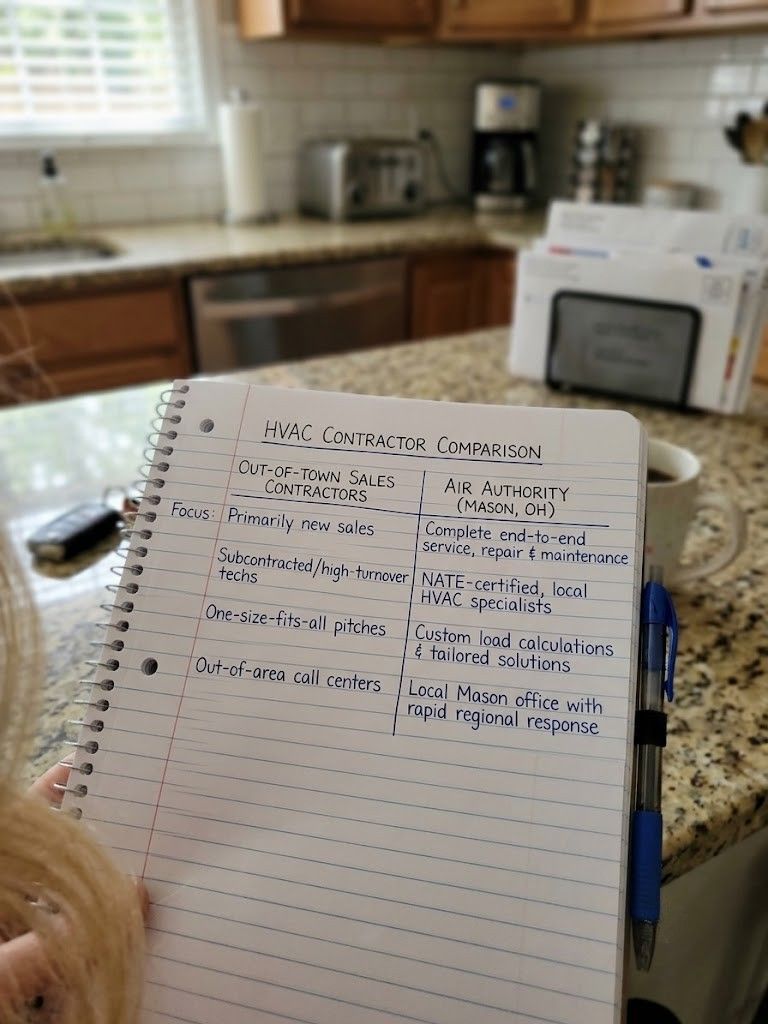 HVAC CONTRACTOR COMPARISON
OUT-OF-TOWN SALES
CONTRACTORS
AIR AUTHORITY
(MASON, OH)
Focus: Primarily new sales
Complete end-to-end
service, repair & maintenance
Subcontracted/high-turnover
techs
NATE-certified, local
HVAC specialists
One-size-fits-all pitches
Custom load calculations
& tailored solutions
Out-of-area call centers
Local Mason office with
rapid regional response